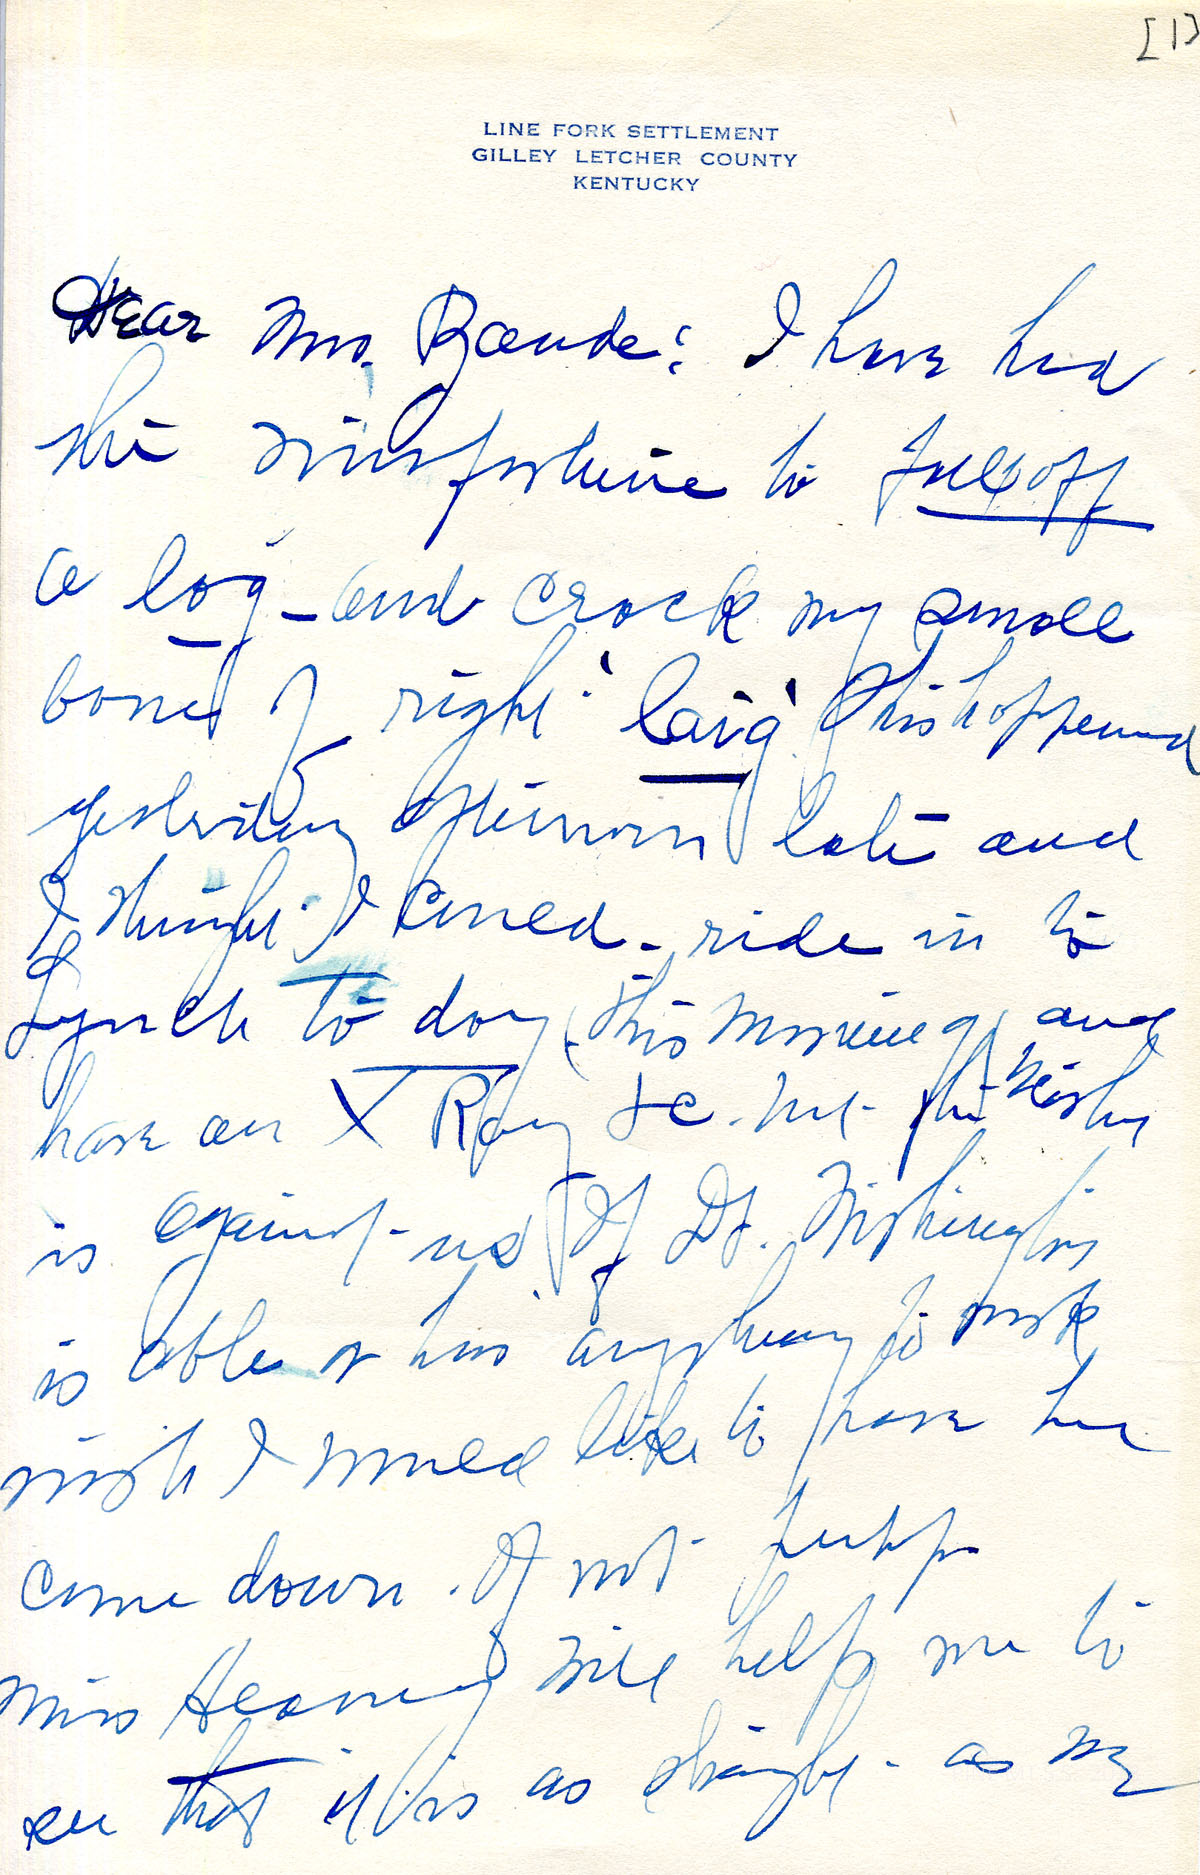 [1]
LINE FORK SETTLEMENT
GILLEY LETCHER COUNTY
KENTUCKY
Dear Mrs. Zande: I have had
the misfortune to fall off
a log - and crack my small
bone of right 'laig' This happened
yesterday afternoon late and
I thought I could - ride in to
Lynch to day (this morning) and
have an X Ray &c. but the
is against us. If Dr.
is able or has any way to
I would like to have her
come down. If not
Miss will help me to
see that it is as straight - as we